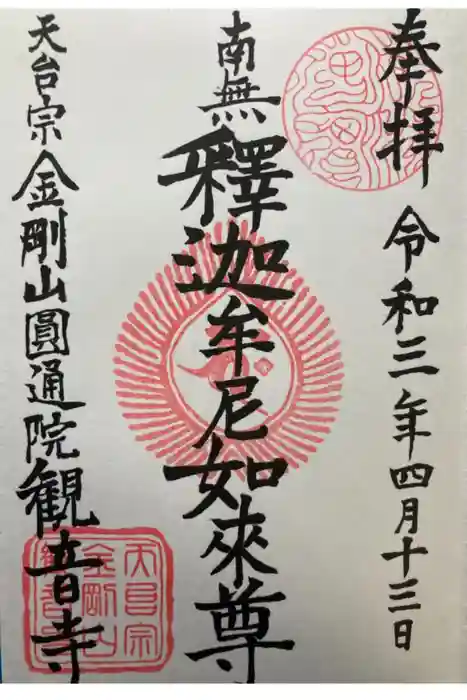 奉拝
令和三年四月十三日
南無
釋迦牟尼如來尊
天台宗金剛山圓通院観音寺